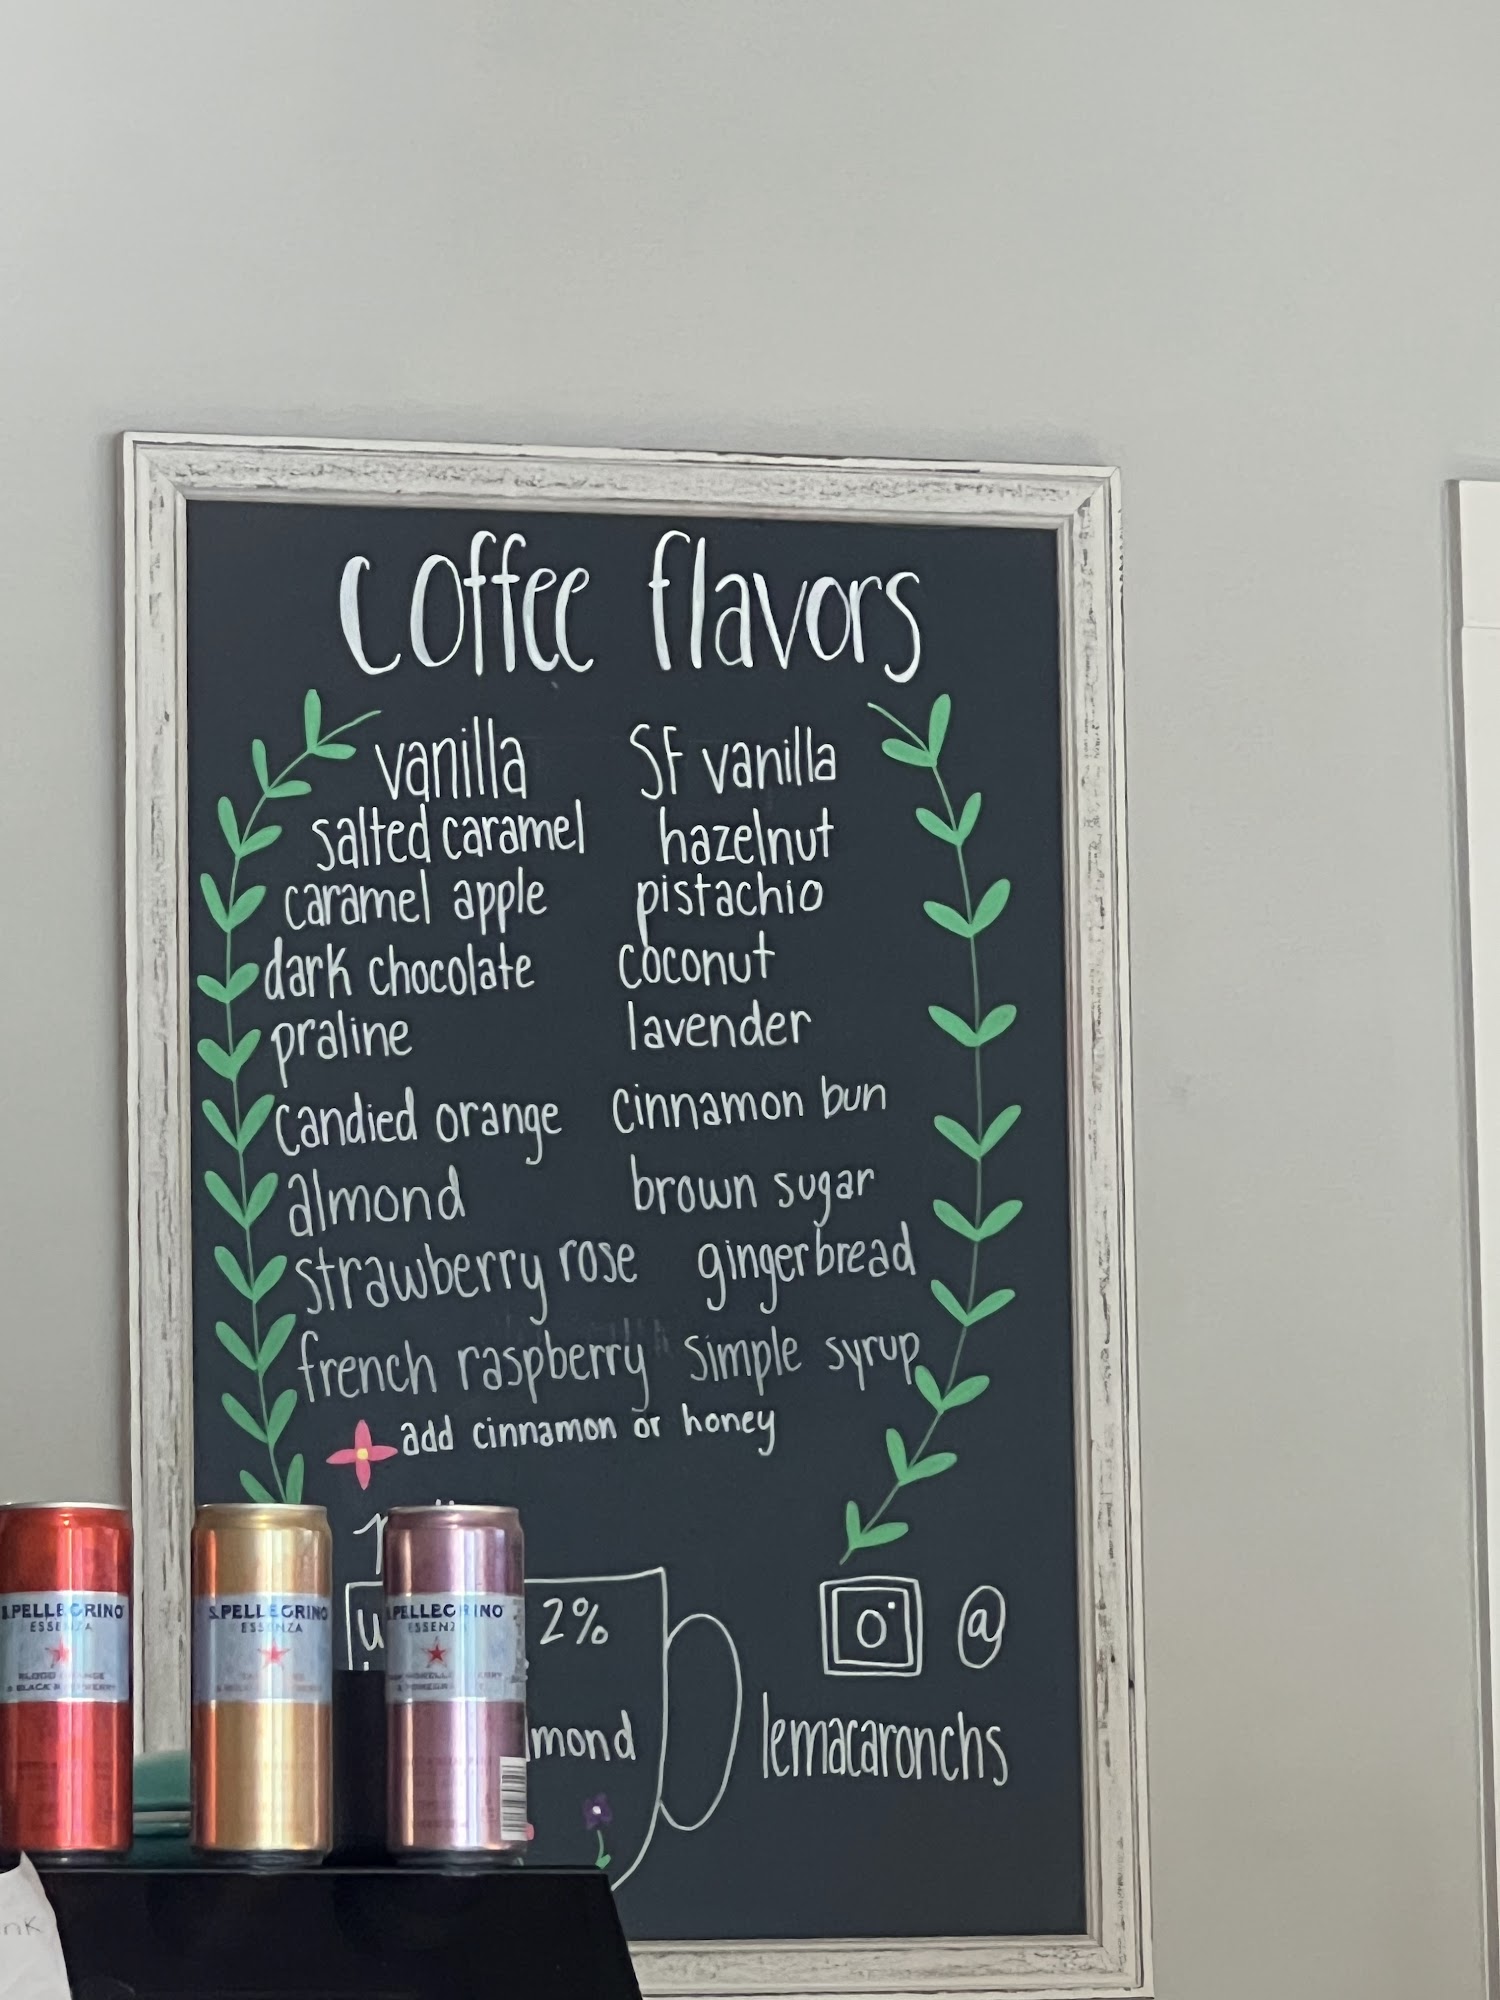 coffee flavors
vanilla SF vanilla
salted caramel hazelnut
caramel apple pistachio
dark chocolate coconut
praline lavender
candied orange cinnamon bun
almond brown sugar
strawberry rose gingerbread
french raspberry simple syrup
add cinnamon or honey
2%
@
lemacaronchs
S.PELLEGRINO
ESSENZA
BLOOD ORANGE
& BLACK RASPBERRY
S.PELLEGRINO
ESSENZA
S.PELLEGRINO
ESSENZA